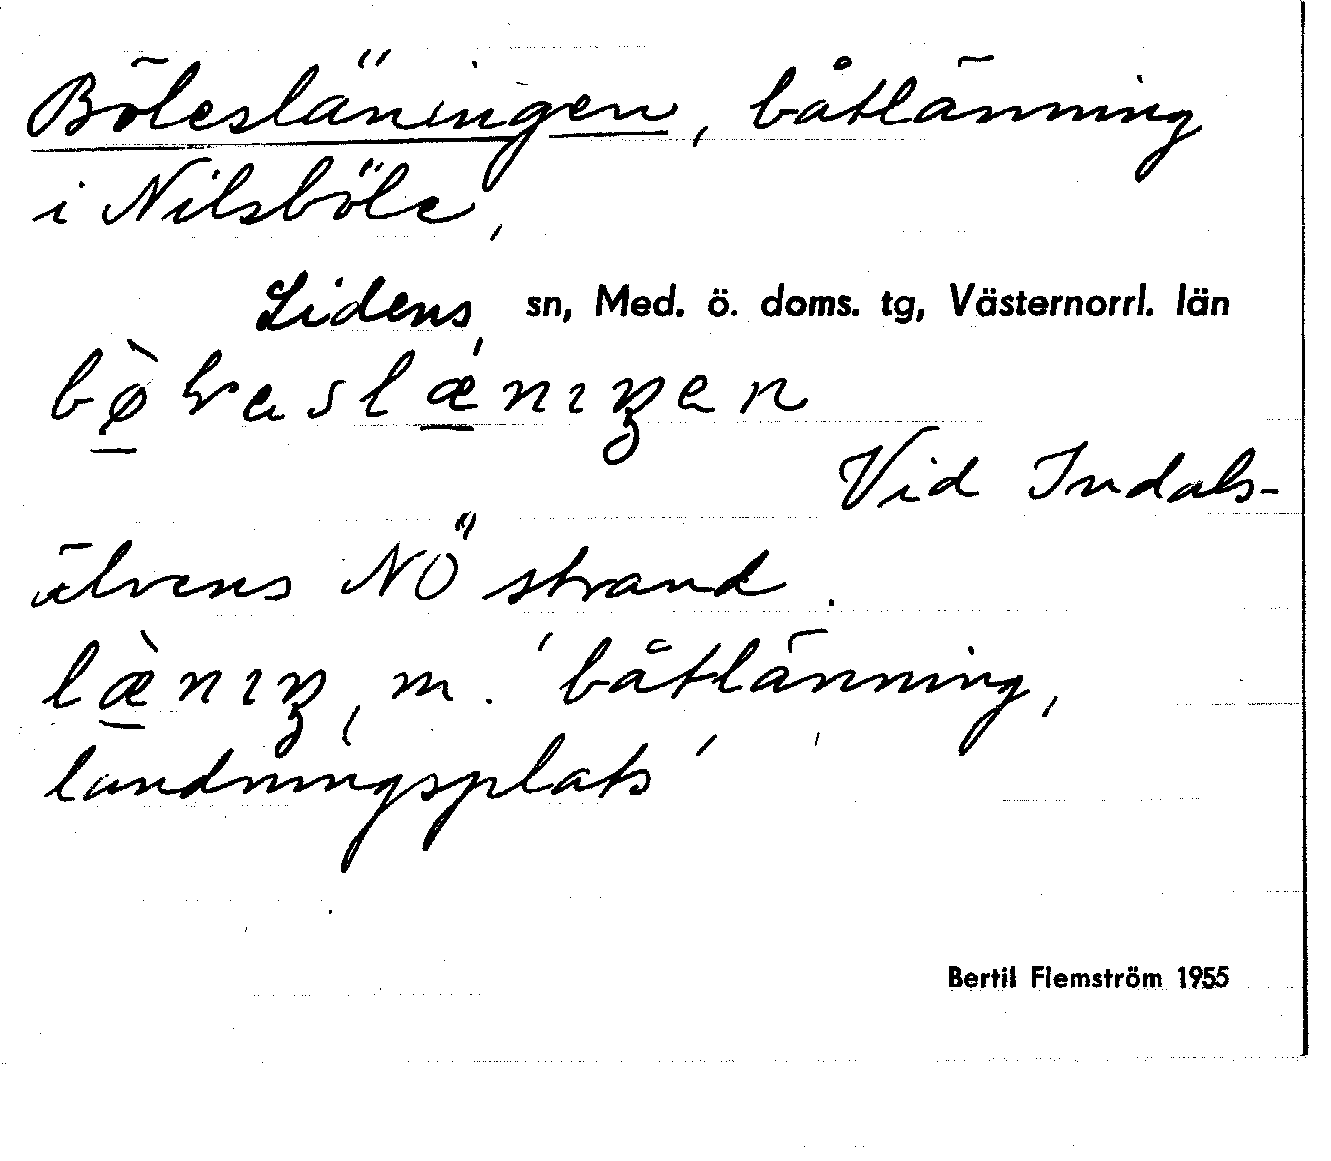 Bölesläningen, båtlänning
i Nilsböle,
Lidens sn, Med. ö. doms. tg, Västernorrl. län
Vid Indals-
älvens NÖ strand.
læ̀nıŋ, m. 'båtlänning,
landningsplats'
Bertil Flemström 1955